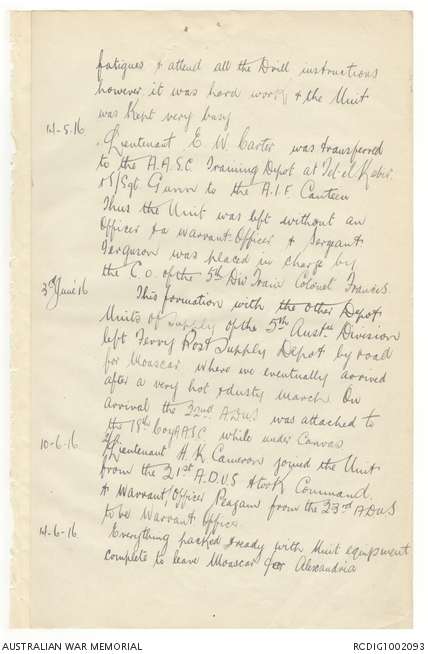 fatigues & attend all the Drill instructions
however it was hard work & the Unit
was kept very busy
14-5.16
Lieutenant E W Carter was transferred
to the A.A.S.C. Training Depot at Tel-el Keber
& S/Sgt. Gunn to the A.I.F. Canteen
Thus the Unit was left without an
Officer & a Warrant Officer & Sergeant
Ferguson was placed in charge by
the C.O. of the 5th Div Train Colonel Francis
3rd June 16
This formation with the other Depot
Units of Supply of the 5th Austn Division
left Ferry Post Supply Depot by road
for Moascar, where we eventually arrived
after a very hot & dusty march On
arrival the 22nd A.D.U.S was attached to
the 18th Coy AASC while under Canvas
10-6-16
Lieutenant H. K. Cameron joined the Unit
from the 21st A.D.U.S & took Command
& Warrant/Officer Peagam from the 23rd ADUS
to be Warrant Officer
14-6-16
Everything packed & ready with Unit equipment
complete to leave Moascar for Alexandria
AUSTRALIAN WAR MEMORIAL
RCDIG1002093